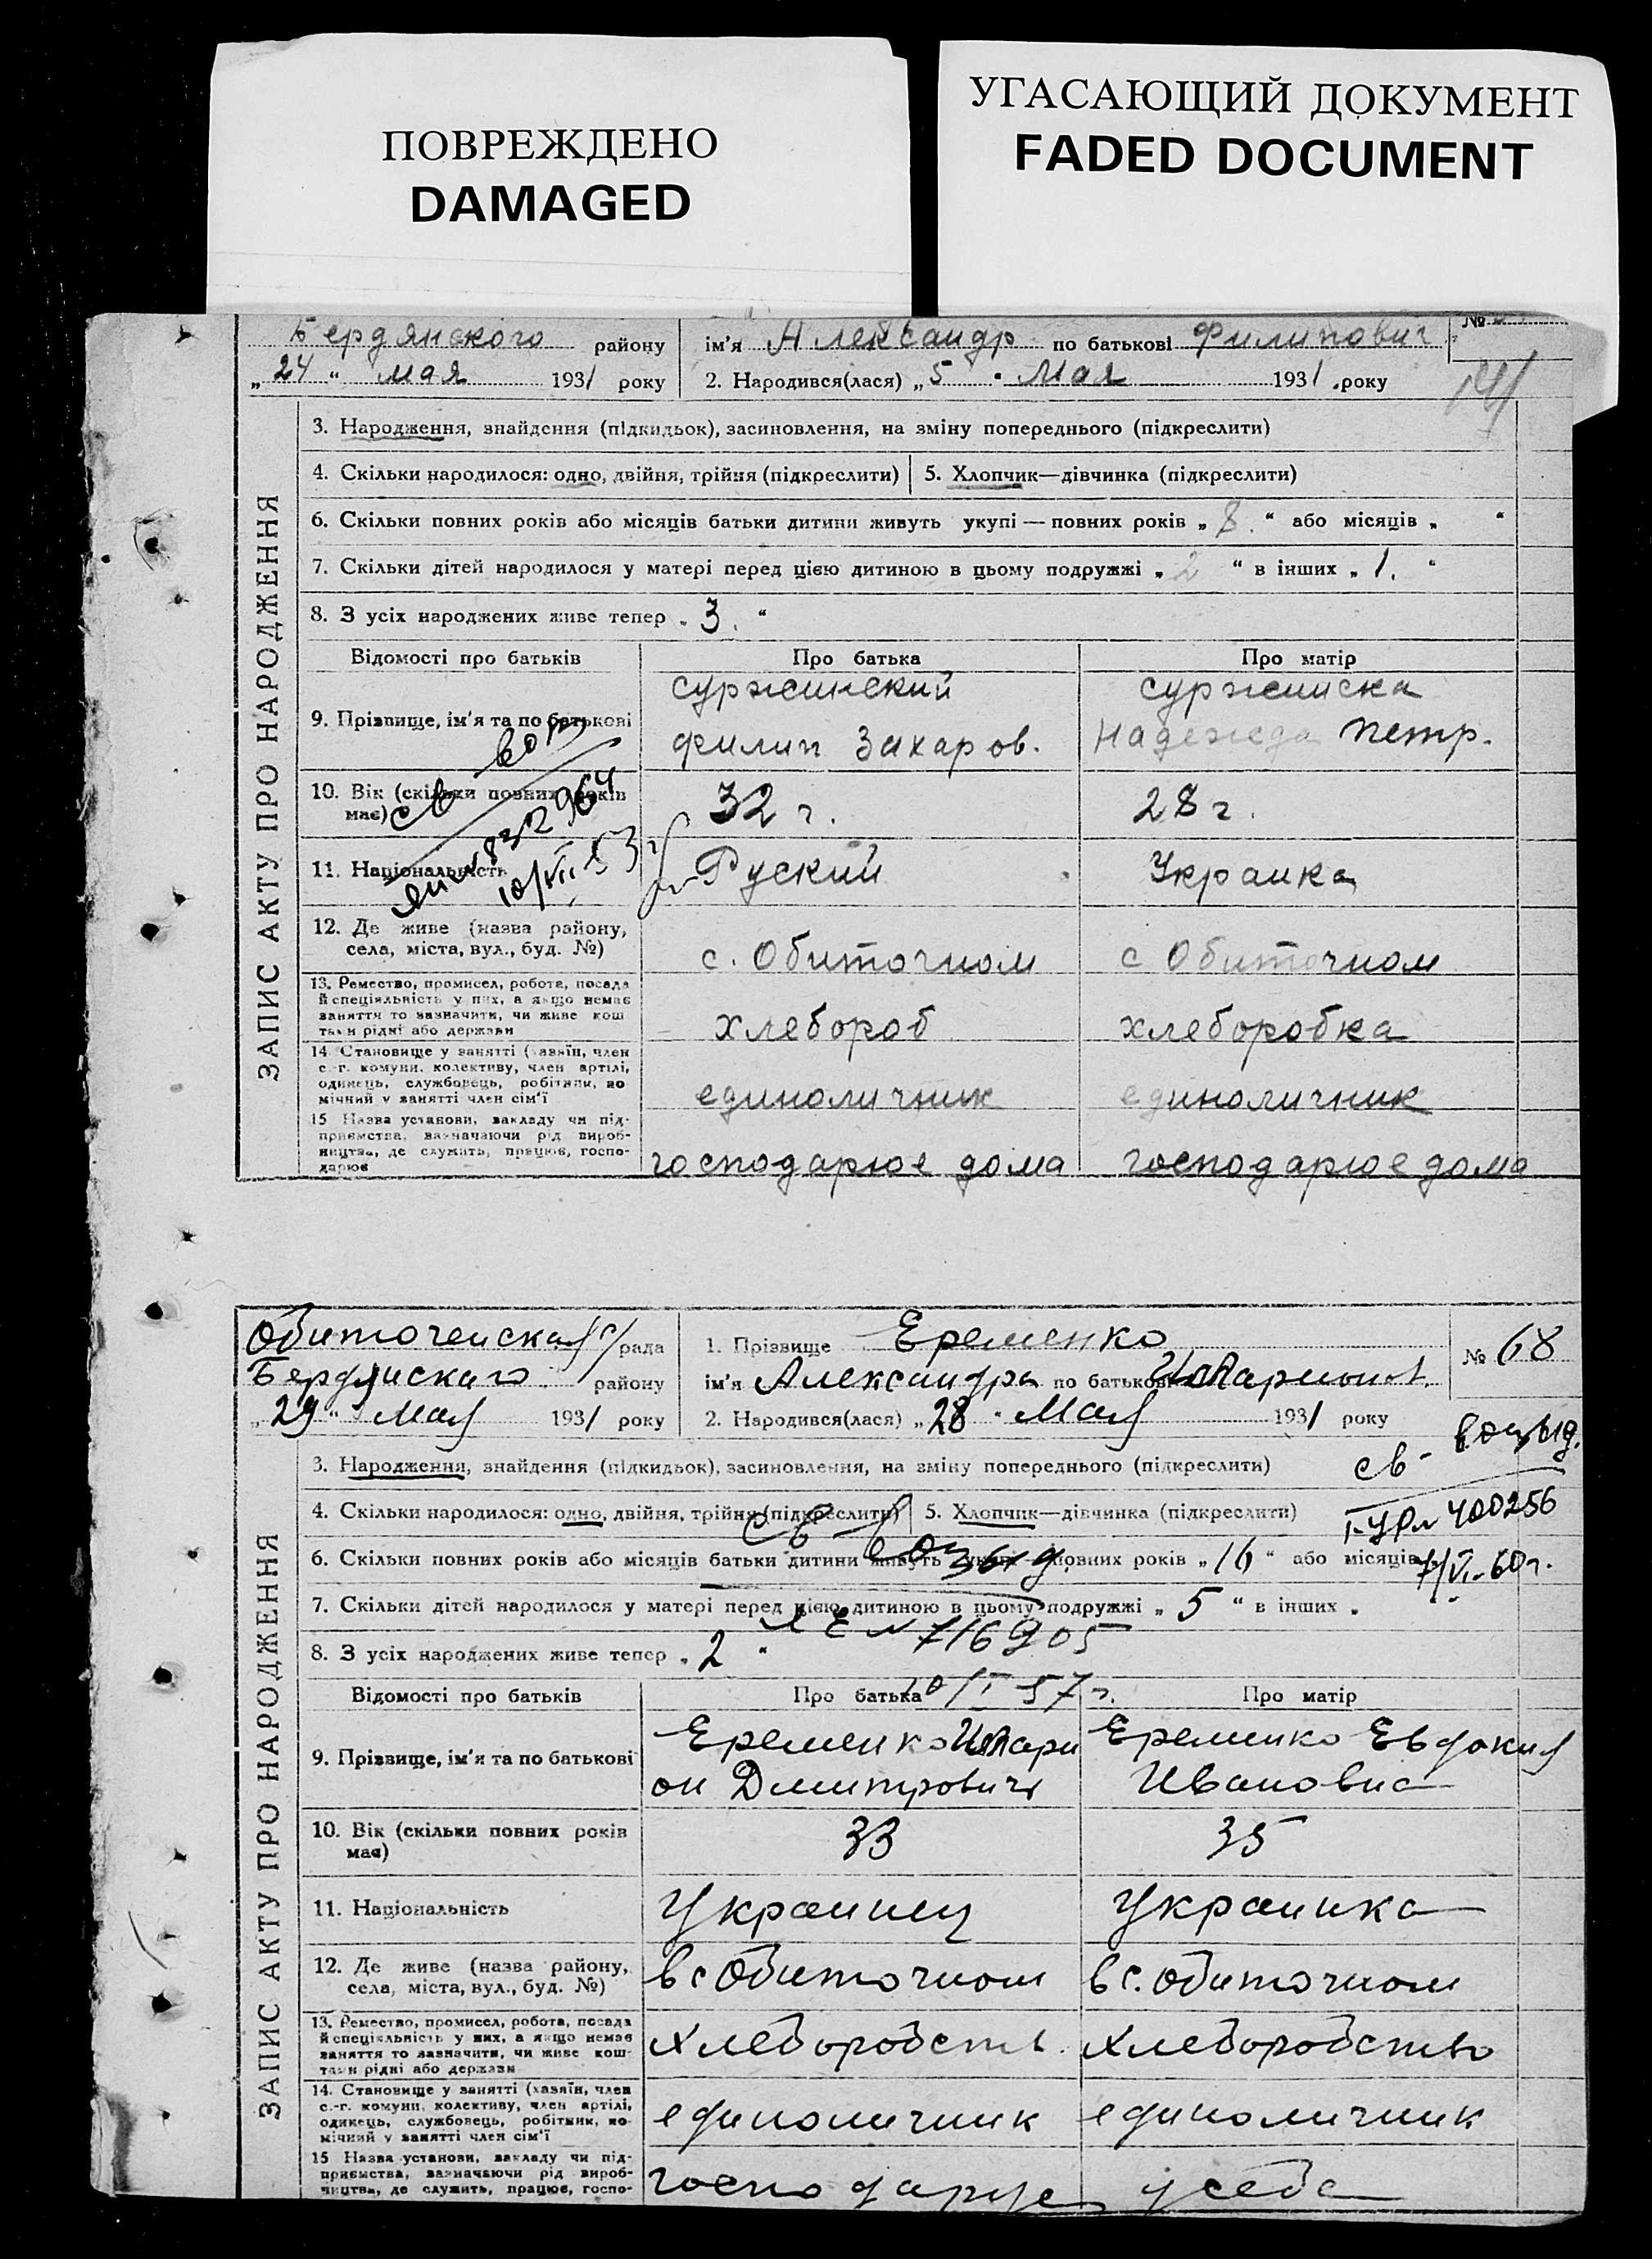 ПОВРЕЖДЕНО
DAMAGED
УГАСАЮЩИЙ ДОКУМЕНТ
FADED DOCUMENT
Бердянского району
„24“ мая 1931 року
ім'я Александр по батькові Филипович
№
2. Народився(лася) „5“ Мая 1931 року
ЗАПИС АКТУ ПРО НАРОДЖЕННЯ
3. Народження, знайдення (підкидьок), засиновлення, на зміну попереднього (підкреслити)
4. Скільки народилося: одно, двійня, трійня (підкреслити)
5. Хлопчик—дівчинка (підкреслити)
6. Скільки повних років або місяців батьки дитини живуть укупі — повних років „8.“ або місяців „ “
7. Скільки дітей народилося у матері перед цією дитиною в цьому подружжі „2“ в інших „1.“
8. З усіх народжених живе тепер „3.“
Відомості про батьків
Про батька
Про матір
9. Прізвище, ім'я та по батькові
суржинский
филип Захаров.
суржинска
Надежда Петр.
10. Вік (скільки повних років має)
32 г.
28 г.
11. Національність
Руский
Украинка
10/VII 53 г
12. Де живе (назва району,
села, міста, вул., буд. №)
с. Обиточном
с Обиточном
13. Ремество, промисел, робота, посада
й спеціяльність у них, а якщо немає
заняття то зазначити, чи живе кош
тами рідні або держави
хлебороб
хлеборобка
14. Становище у занятті (хазяїн, член
с.-г. комуни, колективу, член артілі,
одинець, службовець, робітник, по
мічний у занятті член сім'ї
единоличник
единоличник
15 Назва установи, закладу чи під-
приємства, вазначаючи рід вироб-
ництва, де служить, працює, госпо-
дарює
господарюе дома
господарюе дома
Обиточенская с/рада
Бердянскаго району
„29“ Мая 1931 року
1. Прізвище Еременко
ім'я Александра по батькові Иллариионов.
2. Народився(лася) „28“ Мая 1931 року
№ 68
ЗАПИС АКТУ ПРО НАРОДЖЕННЯ
3. Народження, знайдення (підкидьок), засиновлення, на зміну попереднього (підкреслити)
4. Скільки народилося: одно, двійня, трійня (підкреслити)
5. Хлопчик—дівчинка (підкреслити)
400256
6. Скільки повних років або місяців батьки дитини живуть укупі — повних років „16“ або місяців
7/VI-60 г.
7. Скільки дітей народилося у матері перед цією дитиною в цьому подружжі „5“ в інших „
№ 716905
8. З усіх народжених живе тепер „2“
Відомості про батьків
Про батька
Про матір
9. Прізвище, ім'я та по батькові
Еременко Илари
он Дмитрович
Еременко Евдокия
Ивановна
10. Вік (скільки повних років має)
33
35
11. Національність
Украинец
Украинка
12. Де живе (назва району,
села, міста, вул., буд. №)
в с Обиточном
в с. Обиточном
13. Ремество, промисел, робота, посада
й спеціяльність у них, а якщо немає
заняття то зазначити, чи живе кош-
тами рідні або держави
Хлеборобств.
Хлеборобство
14. Становище у занятті (хазяїн, член
с.-г. комуни, колективу, член артілі,
одинець, службовець, робітник, по-
мічний у занятті член сім'ї
единоличник
единоличник
15 Назва установи, закладу чи під-
приємства, вазначаючи рід вироб-
ництва, де служить, працює, госпо-
господарує у себе